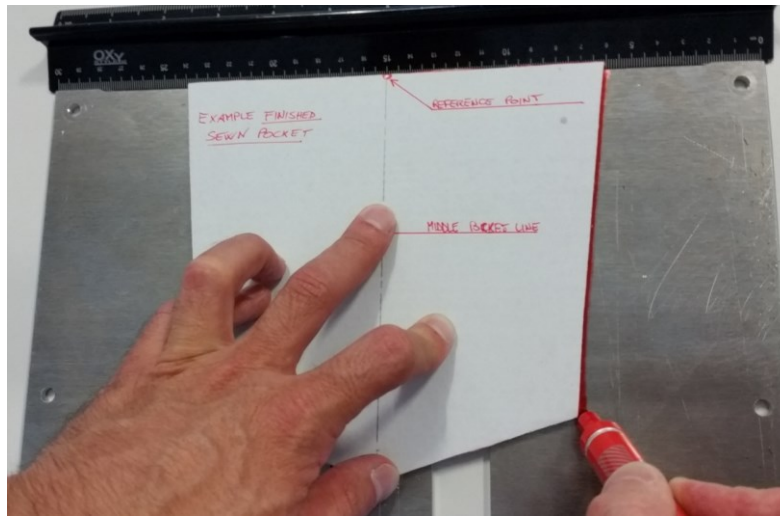 OXY
30
15
10
5
0
EXAMPLE FINISHED
SEWN POCKET
REFERENCE POINT
MIDDLE POCKET LINE